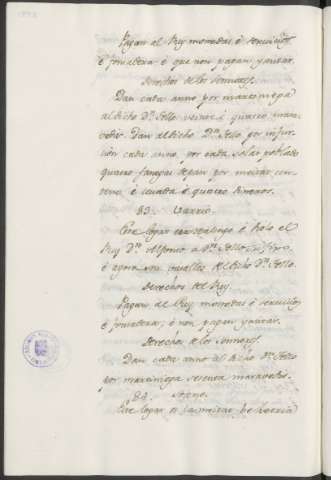 Pagan al Rey monedas é servicios
é fonsadera: é que non pagan yantar.
derechos de los sennores.
Dan cada anno por marzamega
al dicho Dn. Tello veinte é quatro mara-
vedis. Dan al dicho Dn. Tello por infur-
cion cada anno, por cada solar poblado
quatro fanegas de pan por meitat cen-
teno é cevada é quatro dineros.
83. Varrio.
Este logar era realengo é diolo el
Rey Dn. Alfonso a Dn. Tello su fijo
é agora son vasallos del dicho Dn. Tello.
derechos del Rey.
Pagan al Rey monedas é servicios
é fonsadera; é non pagan yantar.
derechos de los sennores.
Dan cada anno al dicho Dn. Tello
por marzamega setenta maravedis.
84.
Este logar es la meitat behetria